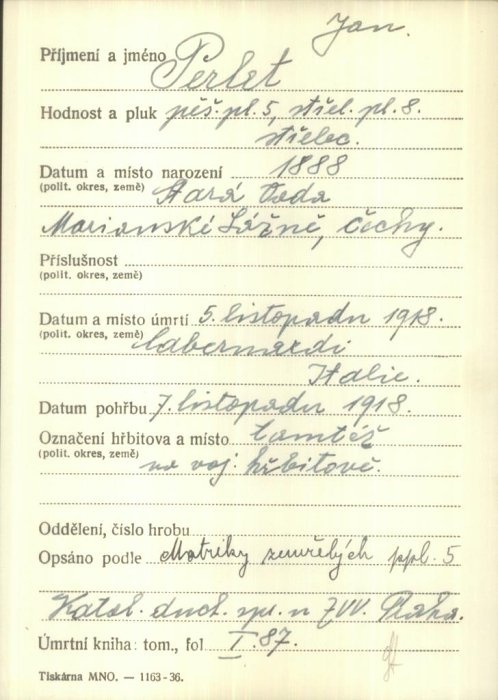 Jan.
Příjmení a jméno Perlet
Hodnost a pluk pěš. pl. 5, střel. pl. 8.
střelec.
Datum a místo narození 1888
(polit. okres, země) Stará Voda
Marianské Lázně, Čechy.
Příslušnost
(polit. okres, země)
Datum a místo úmrtí 5. listopadu 1918.
(polit. okres, země) Cabernardi
Italie.
Datum pohřbu 7. listopadu 1918.
Označení hřbitova a místo tamtéž
(polit. okres, země) na voj. hřbitově.
Oddělení, číslo hrobu
Opsáno podle Matriky zemřelých ppl. 5
Katol. duch. spr. u ZVV. Praha.
Úmrtní kniha: tom., fol I. 87.
Tiskárna MNO. — 1163-36.